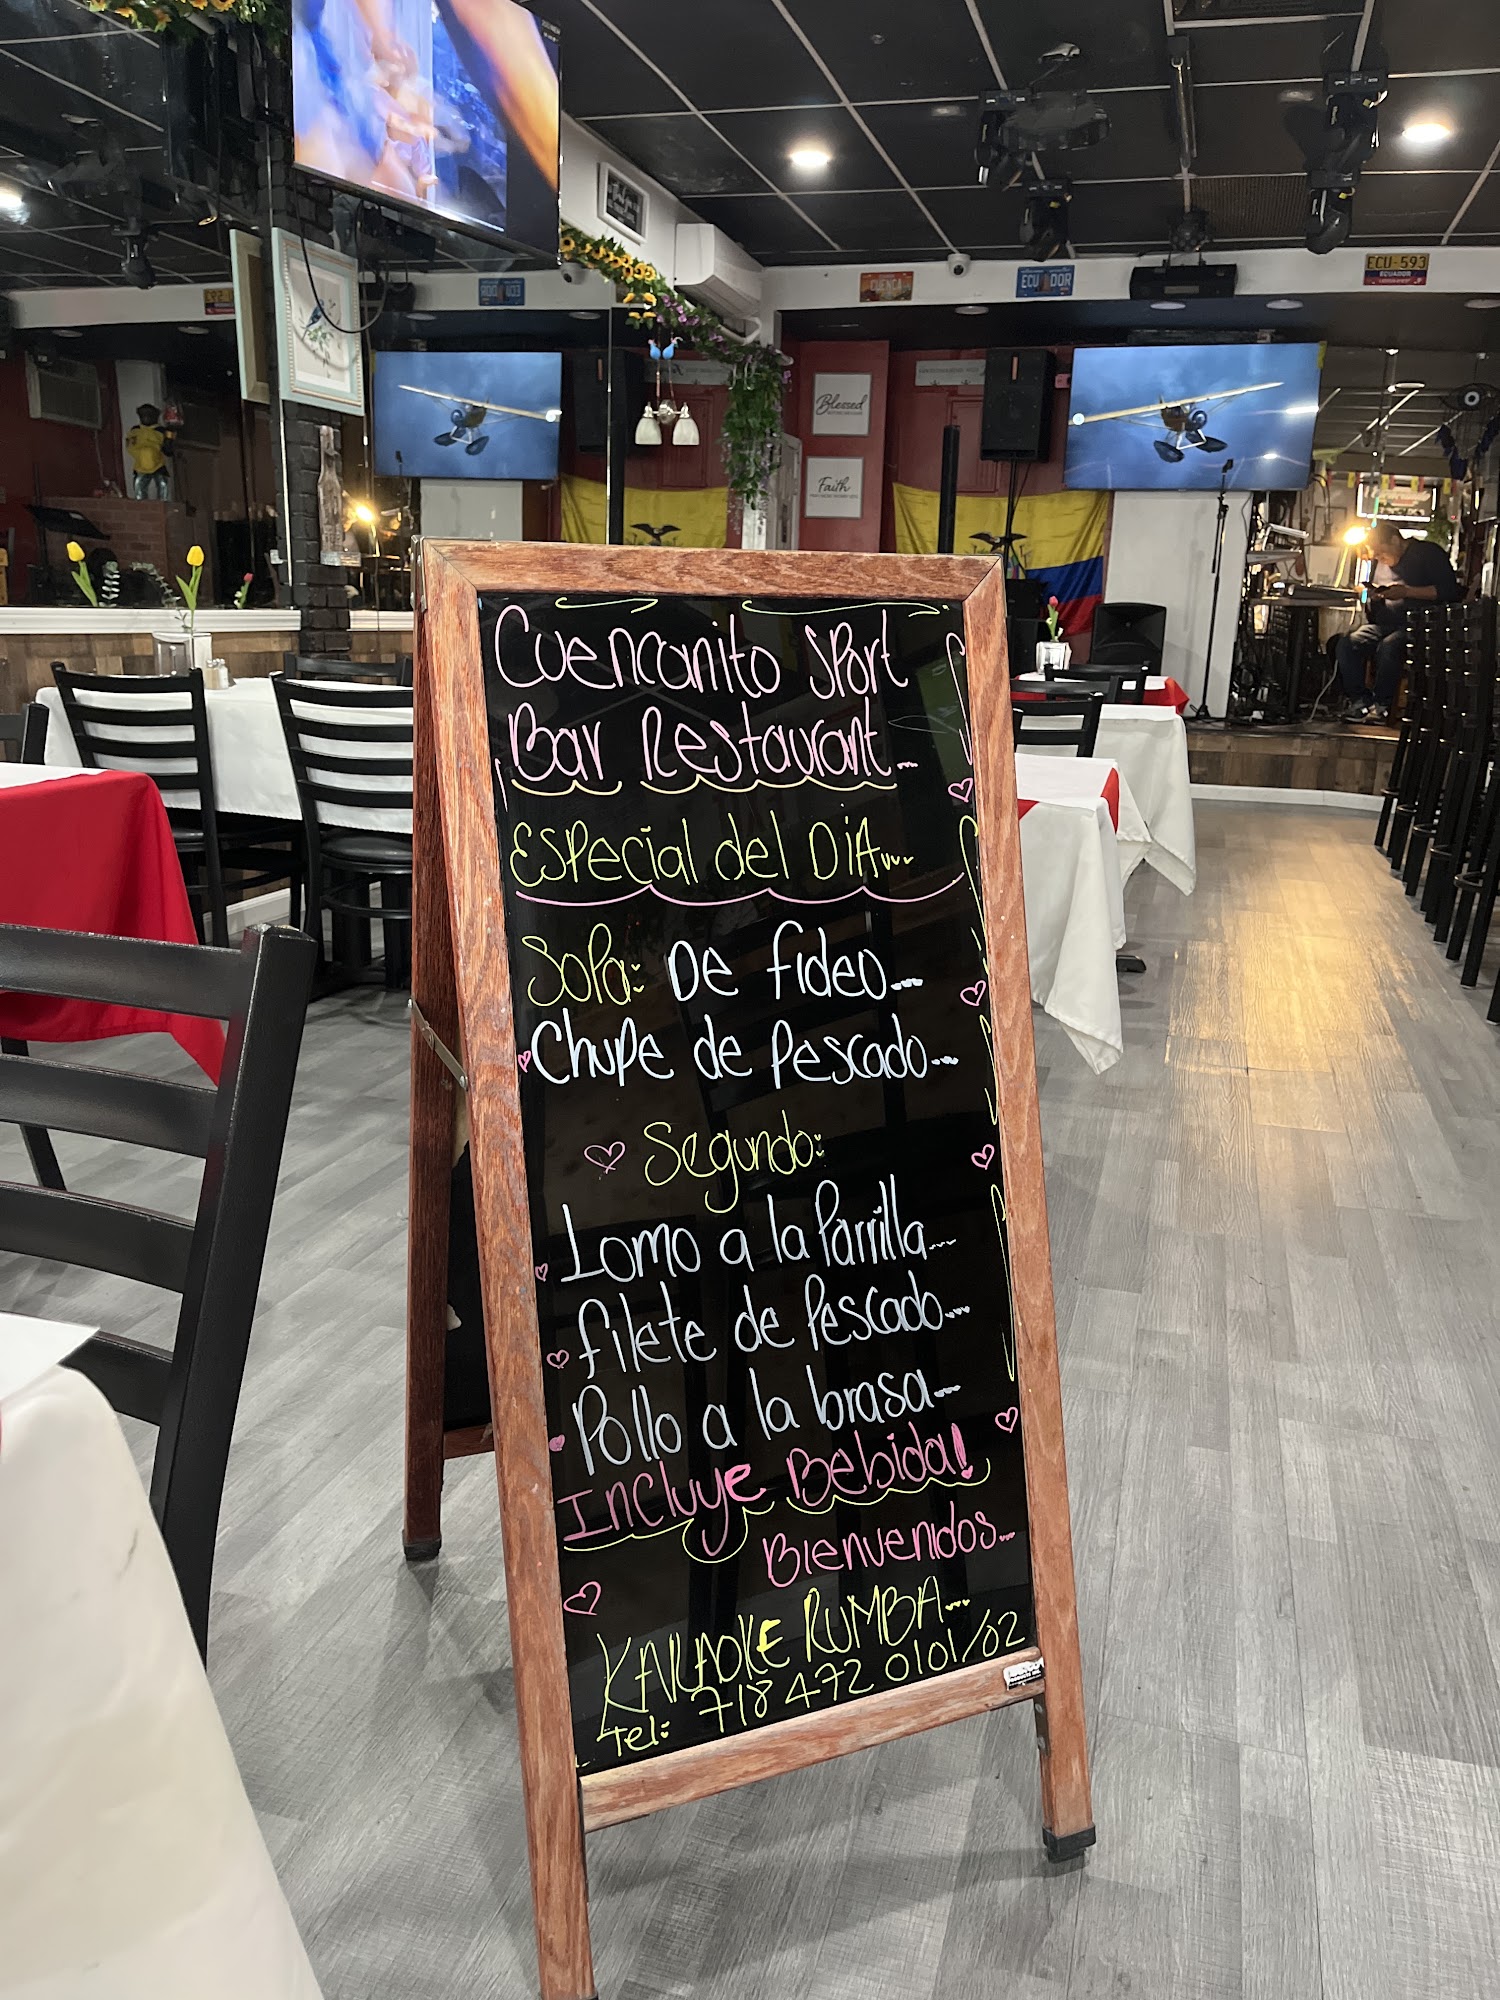 Cuencanito Sport
Bar Restaurant...
Especial del DiA...
Sopa: De fideo...
Chupe de Pescado...
Segundo:
Lomo a la Parrilla...
filete de Pescado...
Pollo a la brasa...
Incluye Bebida!
Bienvenidos...
KARAOKE RUMBA...
Tel: 718 472 0101/02
CUENCA
ECUADOR
ECU-593
ECUADOR
Blessed
Faith